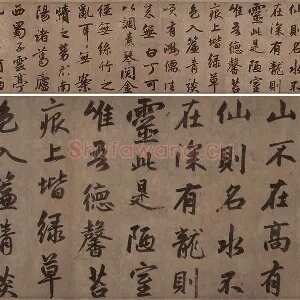 仙則名水不
在深有龍則
靈此是陋室
惟吾德馨苔
痕上堦綠草
色入簾青談
笑有鴻儒往
來無白丁可
以調素琴閱金
經無絲竹之
亂耳無案
牘之勞形南
陽諸葛廬
西蜀子雲亭
山不在高有
仙則名水不
在深有龍則
靈此是陋室
惟吾德馨苔
痕上堦綠草
色入簾青談